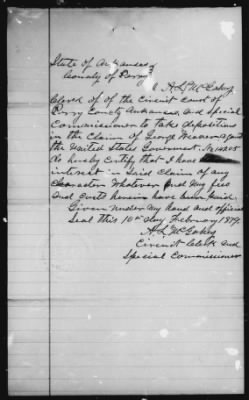 State of Arkansas
County of Perry
I A. L. McCabe
Clerk of of the Circuit Court of
Perry County Arkansas, and Special
Commissioner to take depositions
in the Claim of George against
the United States Government. No
do hereby Certify that I have
interest in Said Claim of any
Character Whatever and my fees
and Costs herein have been paid.
Given under my hand and official
Seal this 10th day February 1879
A. L. McCabe
Circuit Clerk and
Special Commissioner